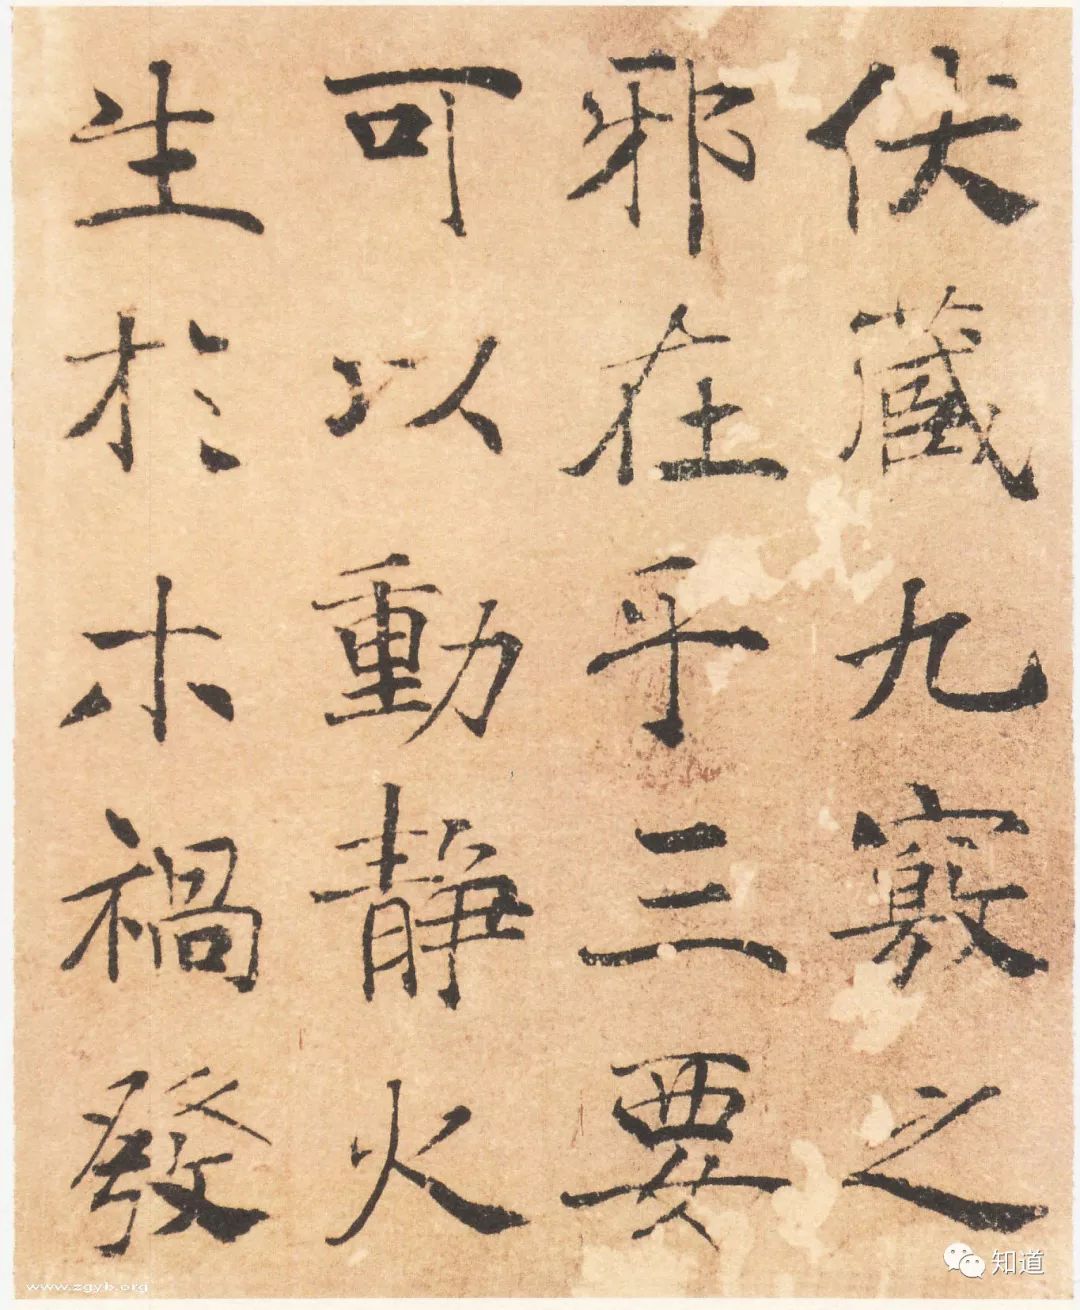 伏藏九竅之
邪在乎三要
可以動静火
生於木禍發
www.zgyb.org
知道